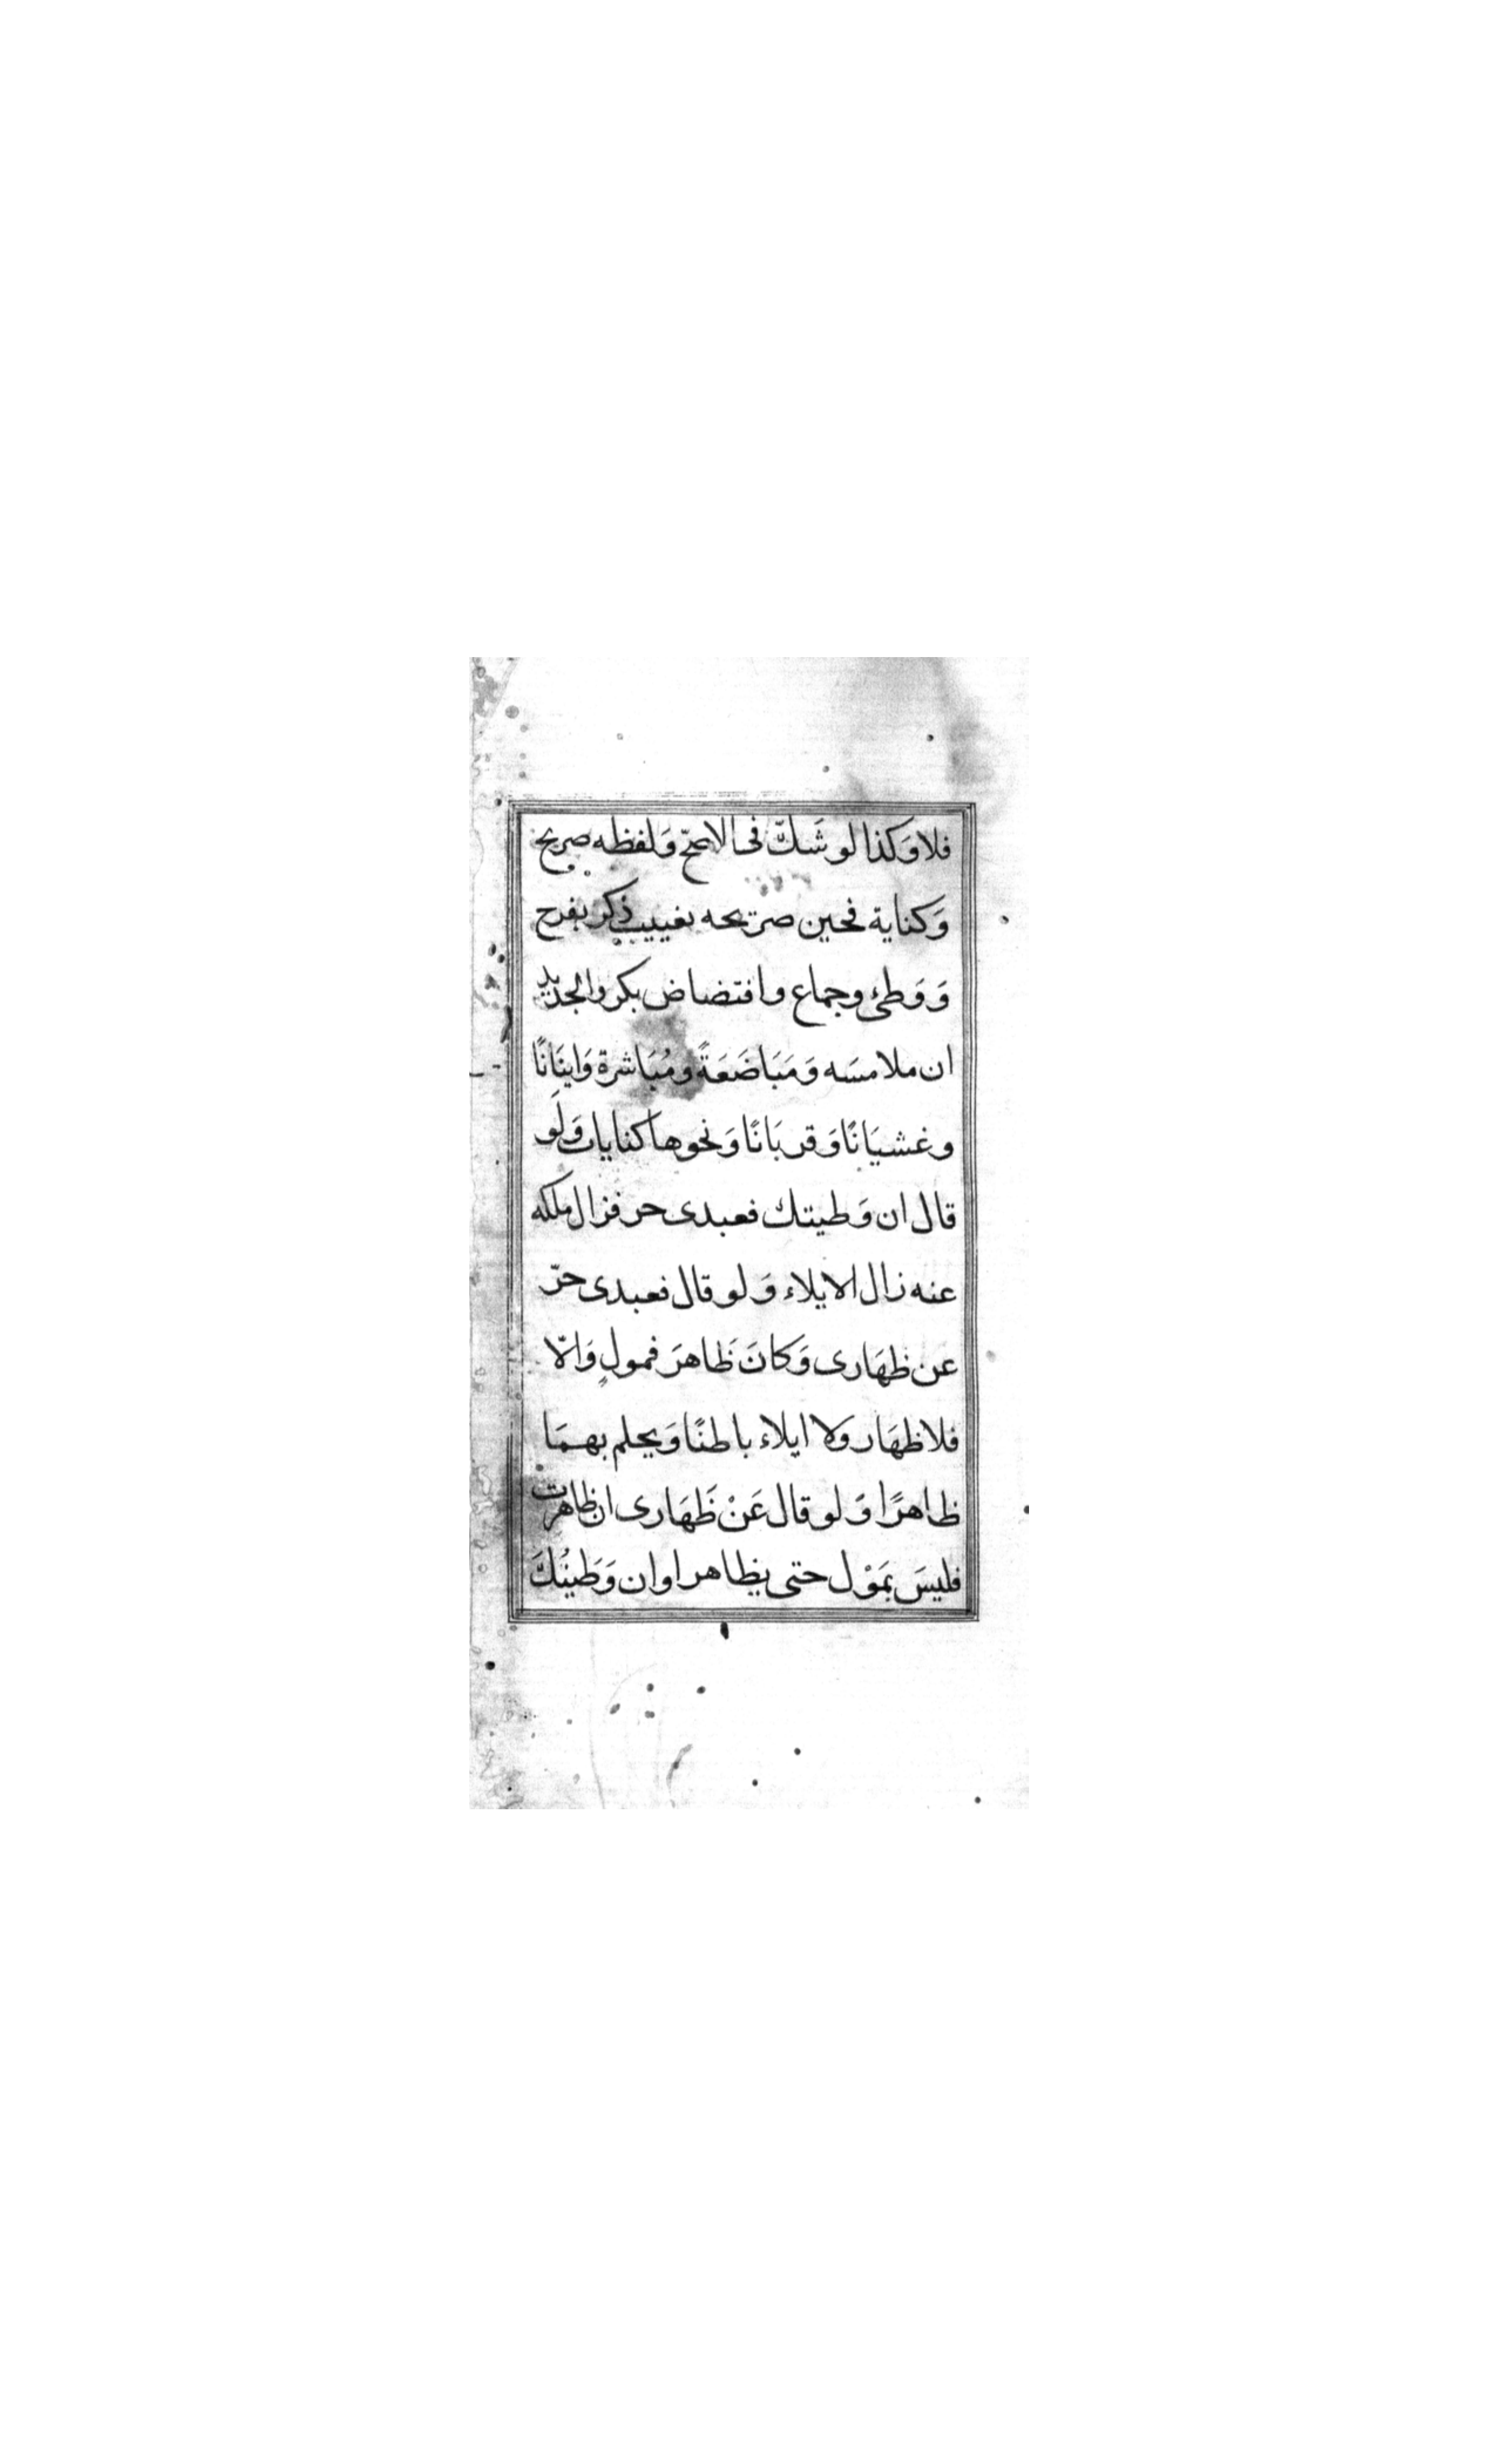 فلا وَكذا لو شَكّ فى الاصحّ وَلفظه صريح
وَكناية فحين صريحه تغييب ذكر بفرج
وَوَطئ وجماع وافتضاض بكر والجديد
ان ملامسَه وَمَبَاضَعَةً ومُبَاشرة وَاتيَانًا
وغشيَانًا وَقربَانًا وَنحوها كنايات وَلَو
قال ان وَطيتك فعبدى حر فزال ملكه
عنه زال الايلاء وَلو قال فعبدى حرّ
عن ظهَارى وَكانَ ظَاهرَ فمولٍ وَالّا
فلا ظهَار ولا ايلاء باطنًا وَيحلم بهمَا
ظاهرًا وَلو قال عَنْ ظَهَارى ان ظاهرت
فليسَ بمَوْل حتى يظاهر او ان وَطيتُكَ